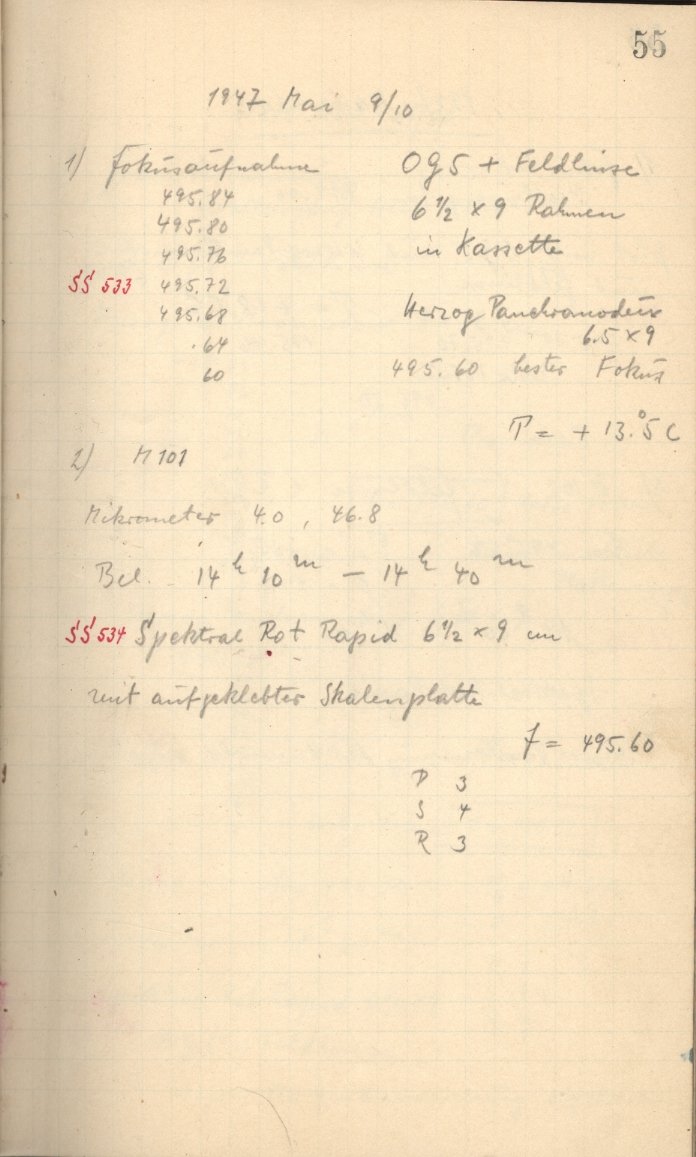 55
1947 Mai 9/10
1) Fokusaufnahme
495.84
495.80
495.76
SS 533 495.72
495.68
.64
60
OG5 + Feldlinse
6 1/2 × 9 Rahmen
in Kassette
Herzog Panchromodux
6.5 × 9
495.60 bester Fokus
T = + 13.°5 C
2) M 101
Mikrometer 4.0 , 46.8
Bel. 14 h 10 m — 14 h 40 m
SS 534 Spektral Rot Rapid 6 1/2 × 9 cm
mit aufgeklebter Skalenplatte
f = 495.60
D 3
S 4
R 3